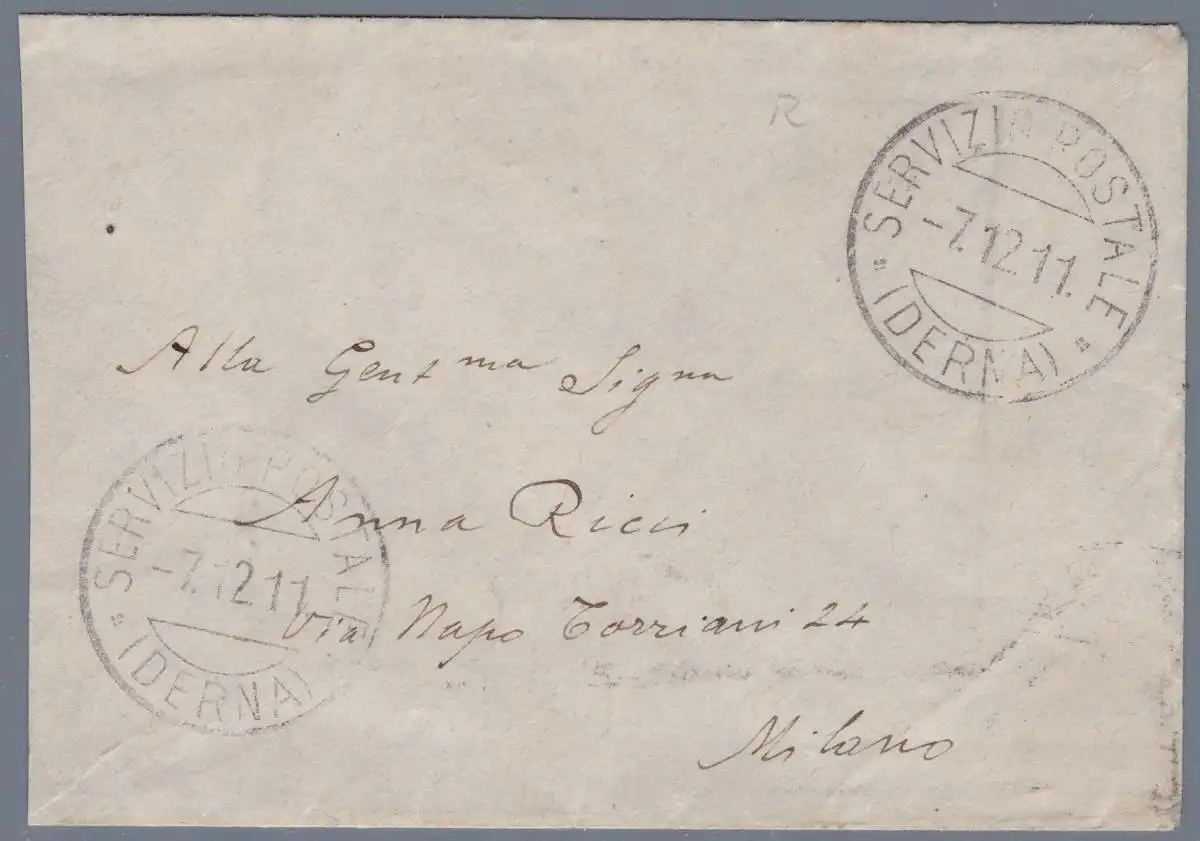 R
SERVIZIO POSTALE
-7.12.11.
(DERNA)
Alla Gent ma Signa
Anna Ricci
Via Napo Torriani 24
Milano
SERVIZIO POSTALE
-7.12.11.
(DERNA)